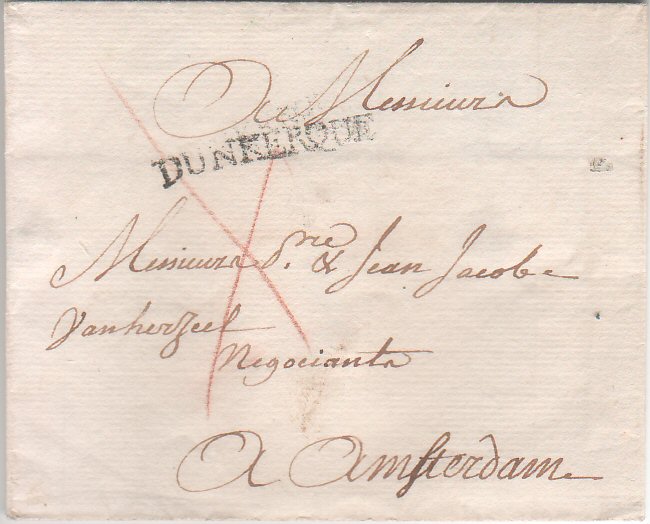 A Messieurs
DUNKERQUE
Messieurs P.re & Jean Jacob
Vanherzeel
Negociants
A Amsterdam